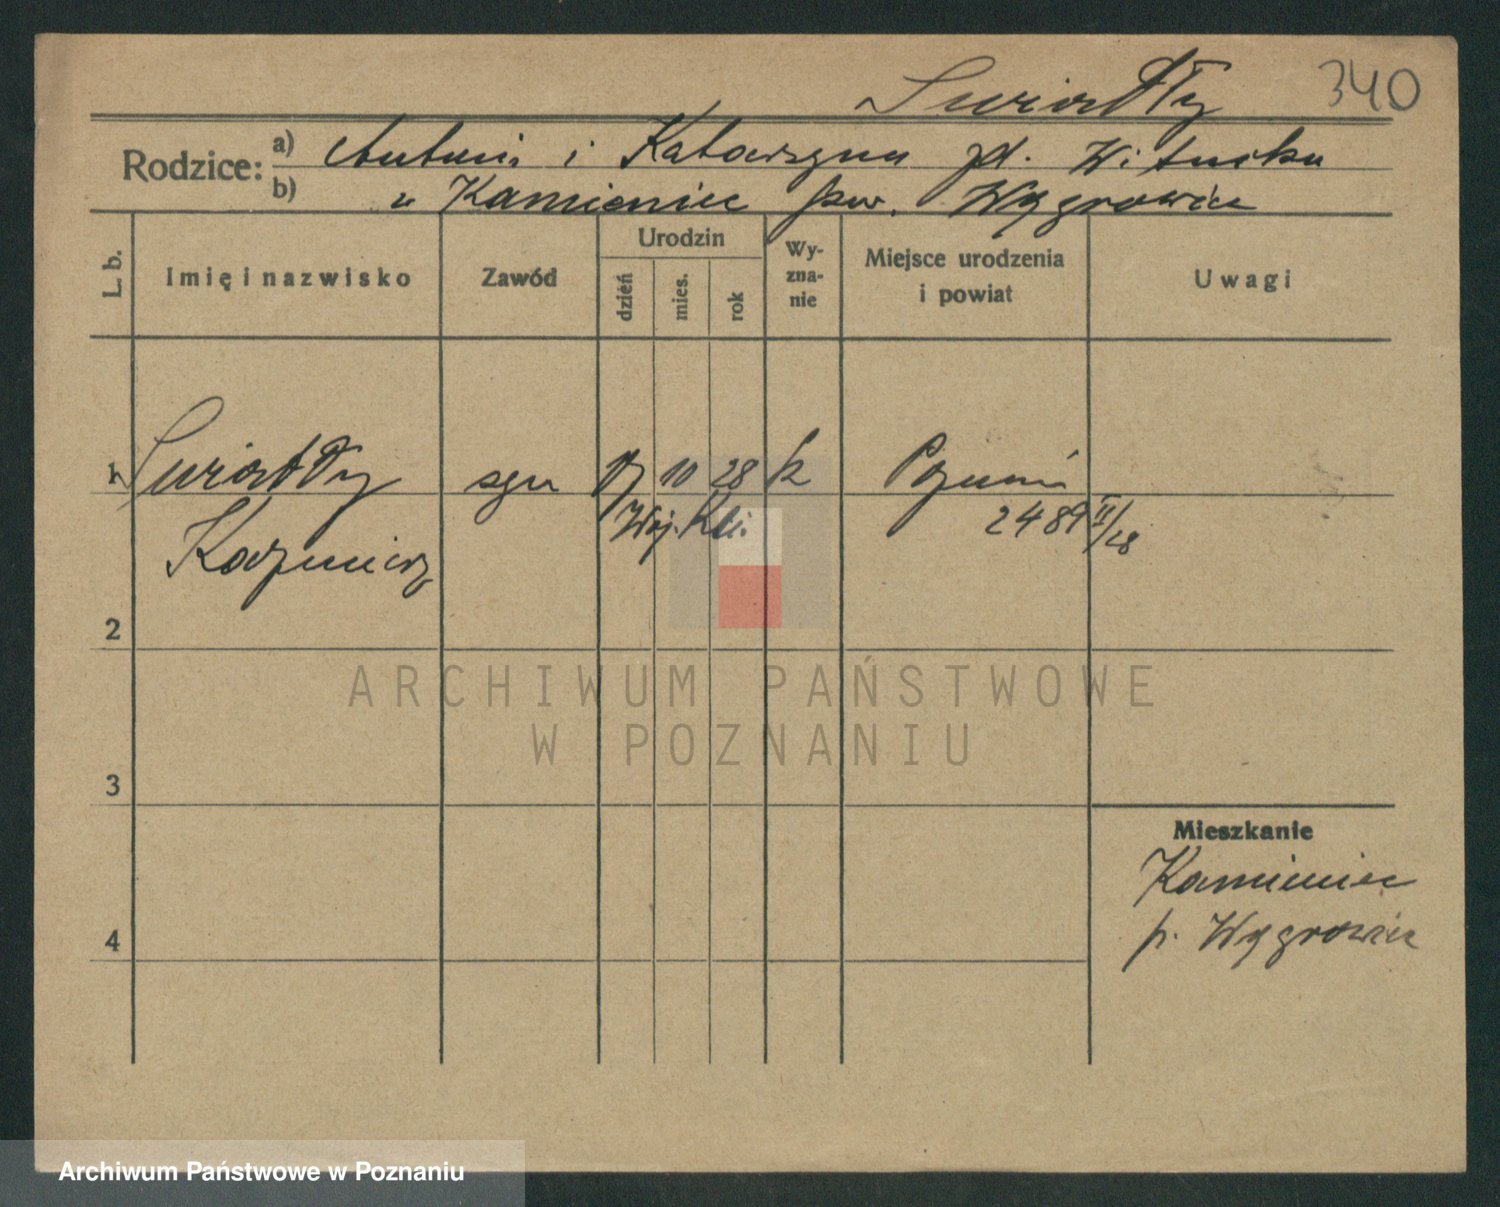 Swiatły
340
Rodzice:
a) Antoni i Katarzyna zd. Witucka
b) w Kamieniec pow. Wągrowiec
L. b.
Imię i nazwisko
Zawód
Urodzin
dzień
mies.
rok
Wy-
zna-
nie
Miejsce urodzenia
i powiat
Uwagi
1 Swiatły syn 10 28 k Poznań
Kazmierz
Woj. Kli. 2489 II/28
2
3
4
Mieszkanie
Kamieniec
p. Wągrowiec
ARCHIWUM PAŃSTWOWE
W POZNANIU
Archiwum Państwowe w Poznaniu